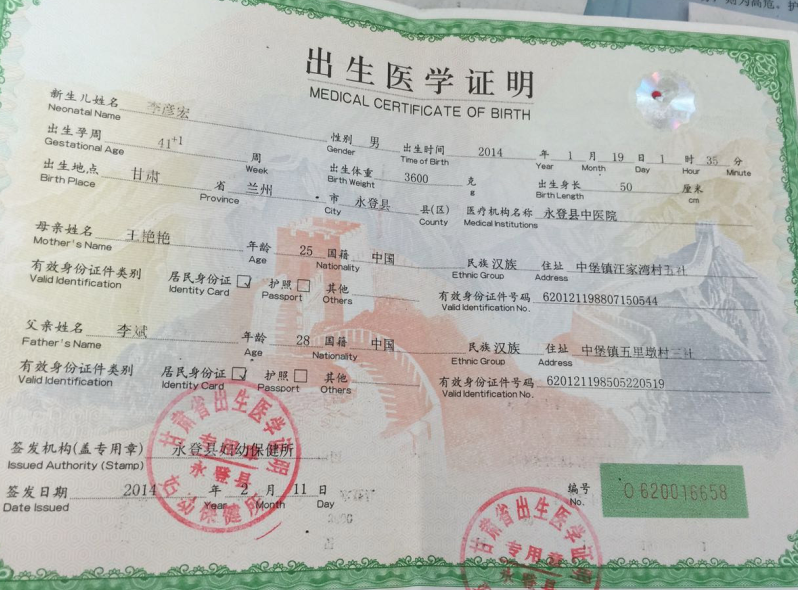 则为高危。护
出生医学证明
MEDICAL CERTIFICATE OF BIRTH
新生儿姓名 李彦宏
Neonatal Name
性别 男 出生时间 2014 年 1 月 19 日 1 时 35 分
Gender Time of Birth Year Month Day Hour Minute
出生孕周 41+1 周
Gestational Age Week
出生体重 3600 克 出生身长 50 厘米
Birth Weight g Birth Length cm
出生地点 甘肃 省 兰州 市 永登县 县(区) 医疗机构名称 永登县中医院
Birth Place Province City County Medical Institutions
母亲姓名 王艳艳 年龄 25 国籍 中国 民族 汉族 住址 中堡镇汪家湾村五社
Mother's Name Age Nationality Ethnic Group Address
有效身份证件类别 居民身份证 护照 其他 有效身份证件号码 620121198807150544
Valid Identification Identity Card Passport Others Valid Identification No.
父亲姓名 李斌 年龄 28 国籍 中国 民族 汉族 住址 中堡镇五里墩村三社
Father's Name Age Nationality Ethnic Group Address
有效身份证件类别 居民身份证 护照 其他 有效身份证件号码 620121198505220519
Valid Identification Identity Card Passport Others Valid Identification No.
签发机构(盖专用章) 永登县妇幼保健所
Issued Authority (Stamp)
签发日期 2014 年 2 月 11 日
Date Issued Year Month Day
编号 O 620016658
No.
甘肃省出生医学证明
专用章
永登县
妇幼保健所
甘肃省出生医学证明
专用章
永登县